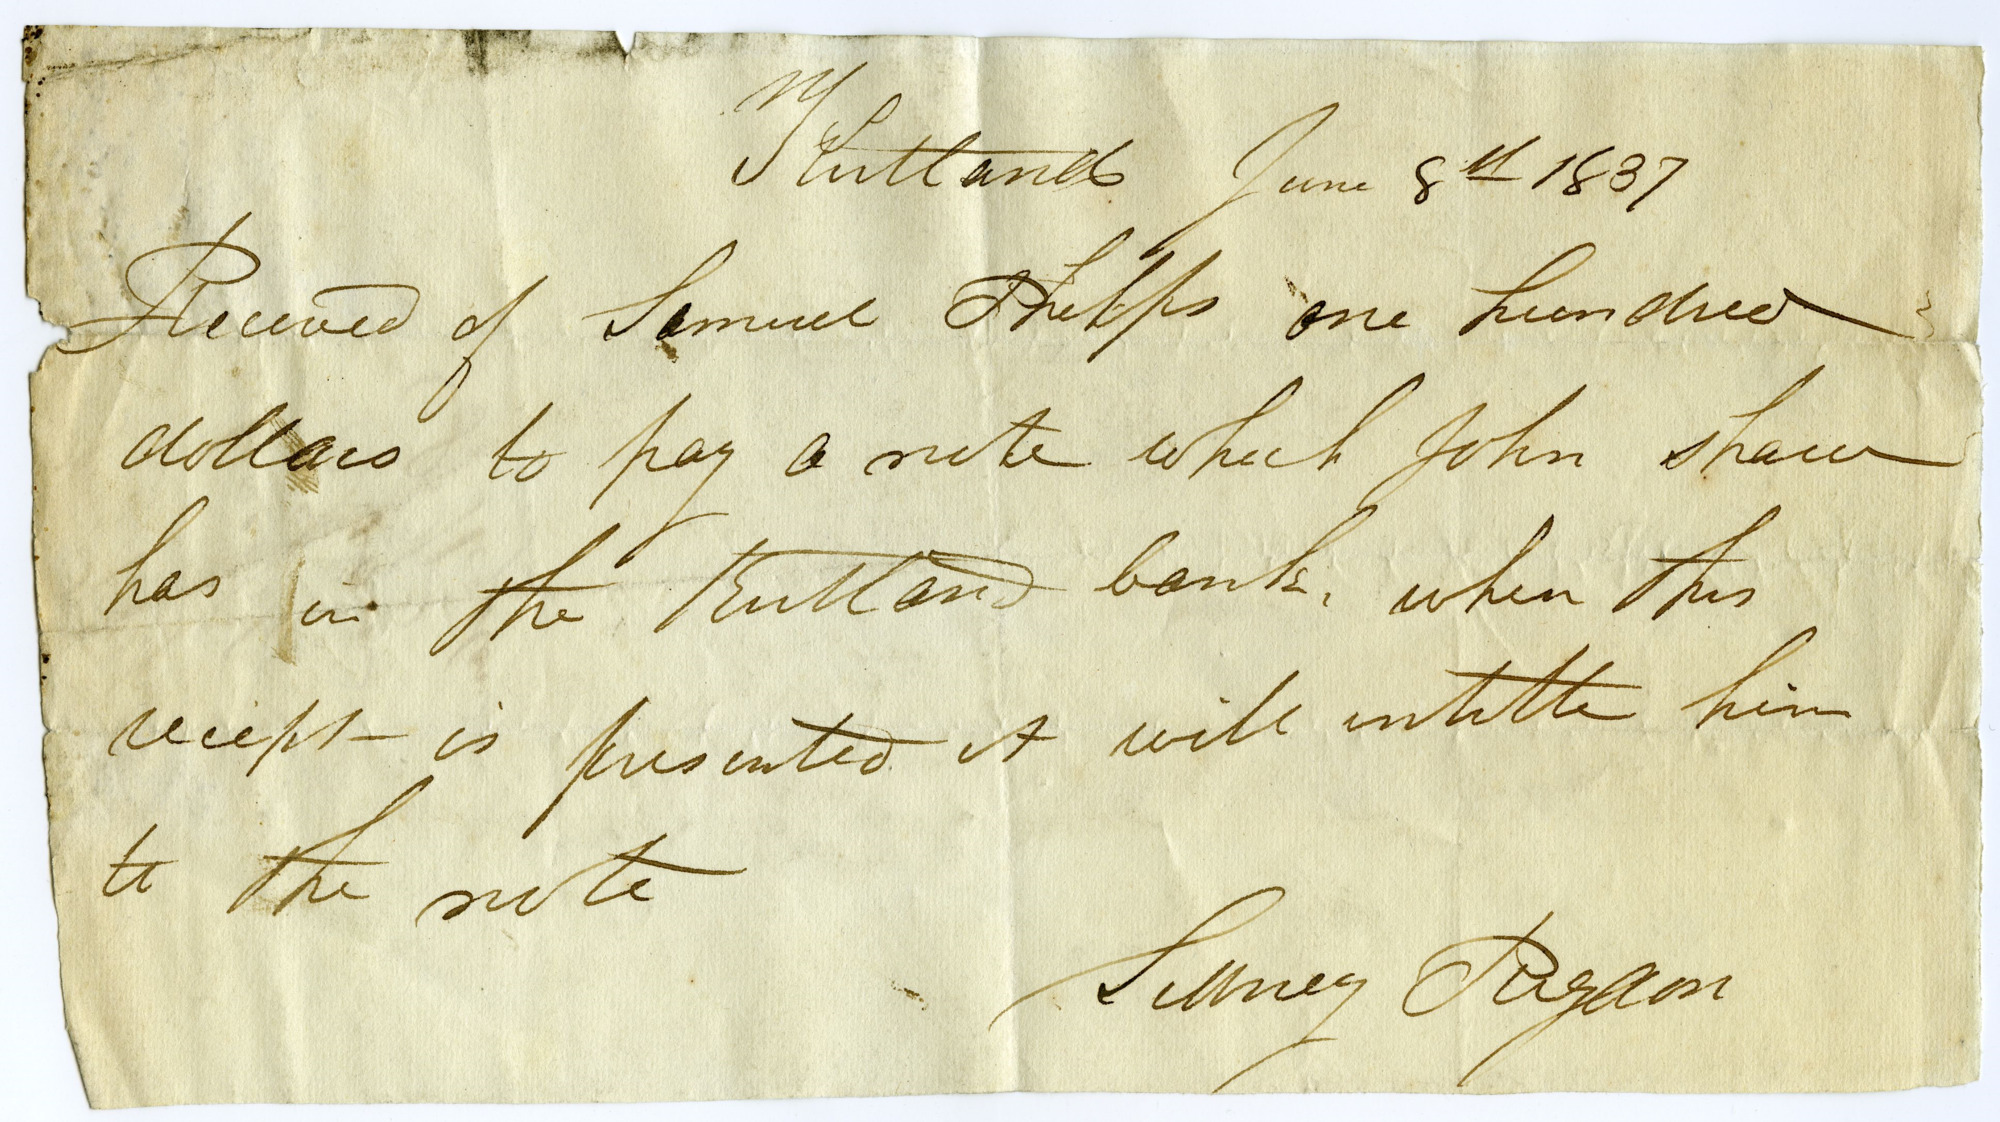 Kirtland June 8th 1837
Received of Samuel Phelps one hundred
dollars to pay a note which John Shaw
has in the Kirtland bank, when this
reciept is presented it will intitle him
to the note
Sidney Rigdon